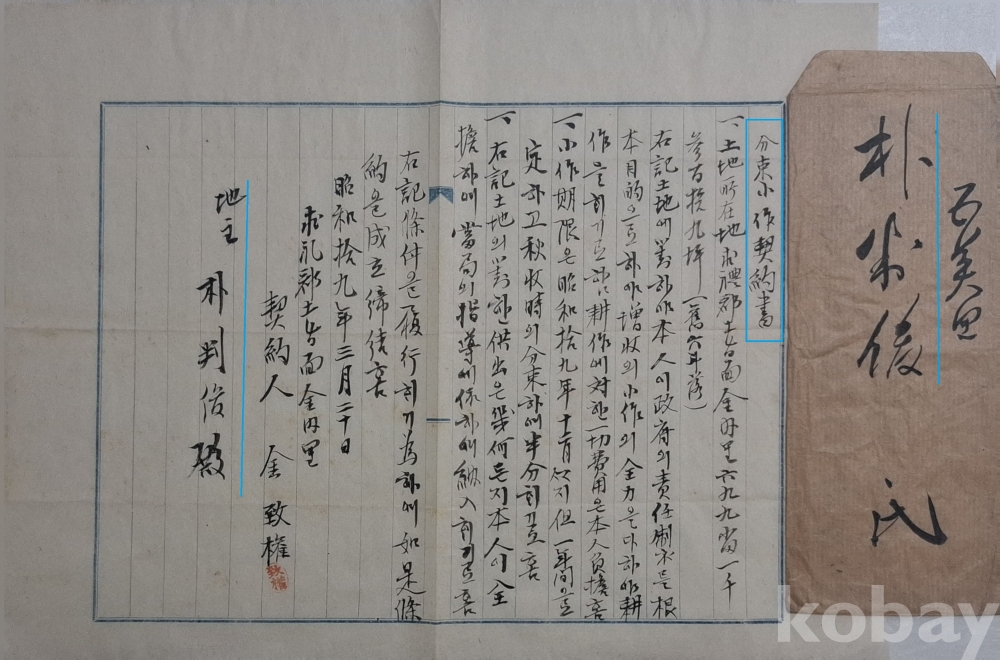 分束小作契約書
一、土地所在地 求禮郡土旨面金內里六九九番 一千
參百拾九坪 (舊六斗落)
右記土地에對하야本人이政府의責任制度를根
本目的으로하야增收의小作의全力을다하야耕
作을하기로하니耕作에対한一切費用은本人負擔홈
一、小作期限은昭和拾九年十二月까지但一年間으로
定하고秋收時의分束하여半分하기로홈
一、右記土地의對한供出은幾何든지本人이全
擔하여當局의指導에依하여納入하기로홈
右記條件을履行하기爲하여如是條
約을成立締結홈
昭和拾九年三月二十日
求礼郡土旨面金內里
契約人 金致權
地主 朴判俊 殿
五美里
朴判俊 氏
kobay